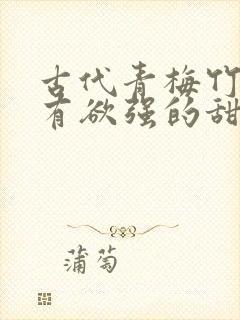 古代青梅竹
有欲强的甜
蒲萄